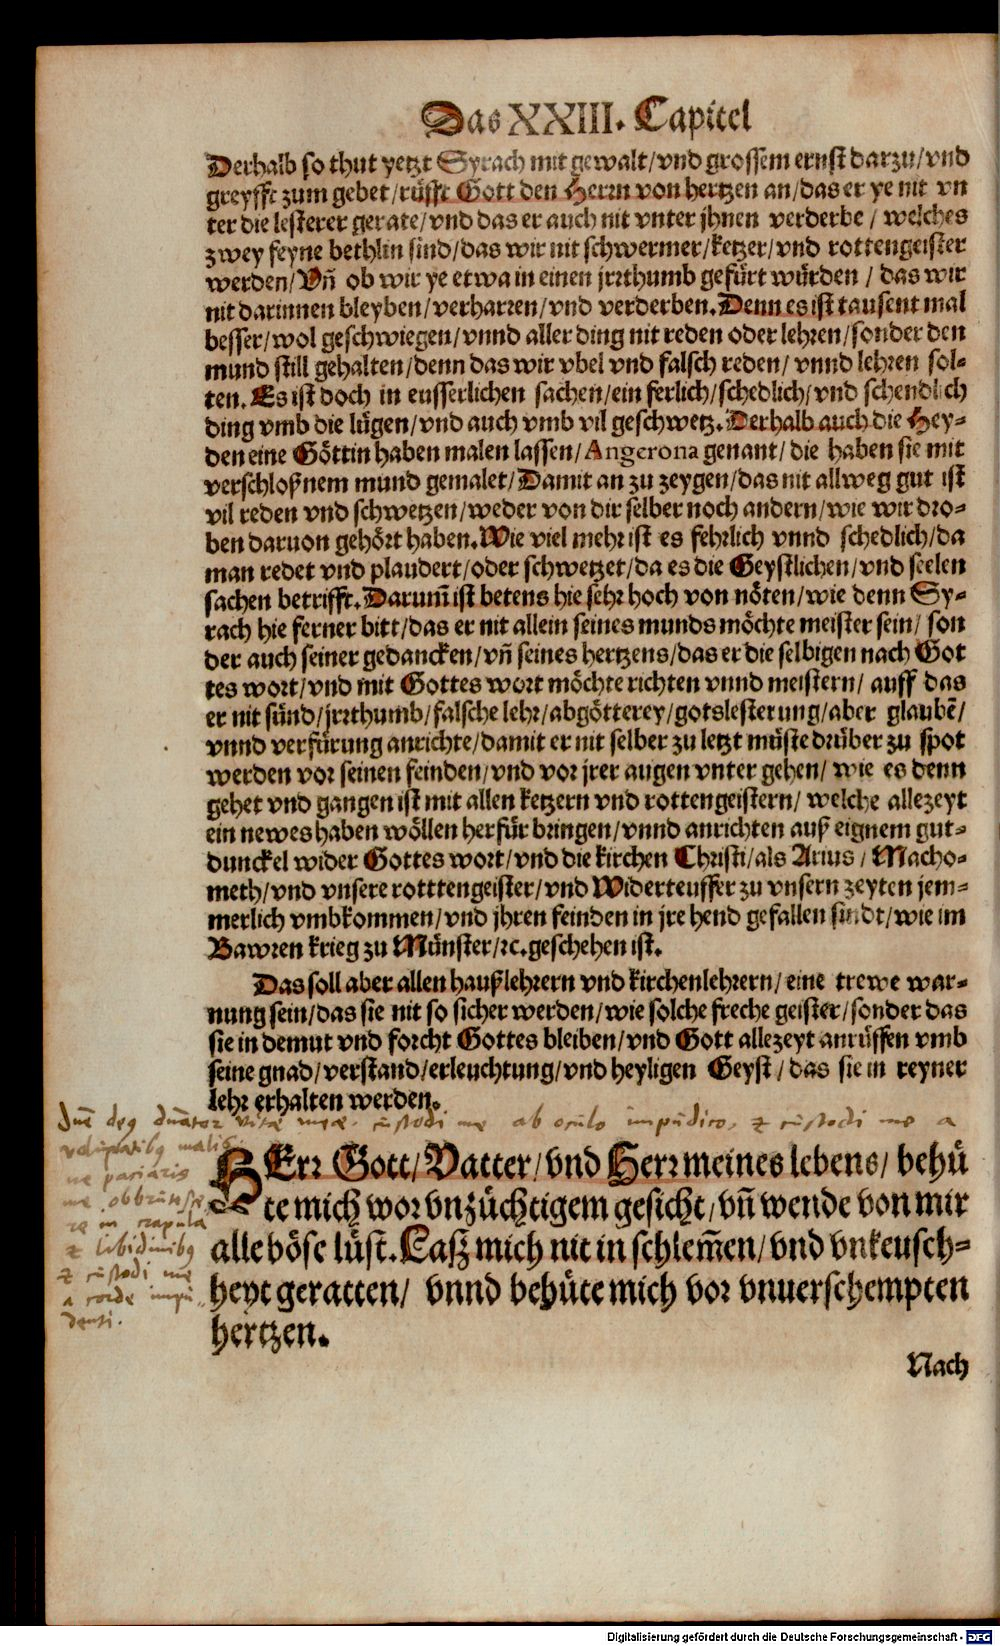 Das XXIII. Capitel
Derhalb so thut yetzt Syrach mit gewalt/vnd grossem ernst darzu/vnd
greyfft zum gebet/rüfft Gott den Herrn von hertzen an/das er ye nit vn
ter die lesterer gerate/vnd das er auch nit vnter jhnen verderbe/ welches
zwey feyne bethlin sind/das wir nit schwermer/ketzer/vnd rottengeister
werden/Vñ ob wir ye etwa in einen jrrthumb gefürt würden / das wir
nit darinnen bleyben/verharren/vnd verderben.Denn es ist tausent mal
besser/wol geschwiegen/vnnd aller ding nit reden oder lehren/sonder den
mund still gehalten/denn das wir vbel vnd falsch reden/ vnnd lehren sol-
ten. Es ist doch in eusserlichen sachen/ein ferlich/schedlich/vnd schendlich
ding vmb die lügen/vnd auch vmb vil geschwetz.Derhalb auch die Hey-
den eine Göttin haben malen lassen/Angerona genant/die haben sie mit
verschloßnem mund gemalet/Damit an zu zeygen/das nit allweg gut ist
vil reden vnd schwetzen/weder von dir selber noch andern/wie wir dro-
ben daruon gehört haben.Wie viel mehr ist es fehrlich vnnd schedlich/da
man redet vnd plaudert/oder schwetzet/da es die Geystlichen/vnd seelen
sachen betrifft.Darum̃ ist betens hie sehr hoch von nöten/wie denn Sy-
rach hie ferner bitt/das er nit allein seines munds möchte meister sein/ son
der auch seiner gedancken/vñ seines hertzens/das er die selbigen nach Got
tes wort/vnd mit Gottes wort möchte richten vnnd meistern/ auff das
er nit sünd/jrrthumb/falsche lehr/abgötterey/gotslesterung/aber glaubẽ/
vnnd verfürung anrichte/damit er nit selber zu letzt müste drüber zu spot
werden vor seinen feinden/vnd vor jrer augen vnter gehen/ wie es denn
gehet vnd gangen ist mit allen ketzern vnd rottengeistern/ welche allezeyt
ein newes haben wöllen herfür bringen/vnnd anrichten auß eignem gut-
dunckel wider Gottes wort/vnd die kirchen Christi/als Arius / Macho-
meth/vnd vnsere rotttengeister/vnd Widerteuffer zu vnsern zeyten jem-
merlich vmbkommen/vnd jhren feinden in jre hend gefallen sindt/wie im
Bawren krieg zu Münster/rc.geschehen ist.
Das soll aber allen haußlehrern vnd kirchenlehrern/eine trewe war-
nung sein/das sie nit so sicher werden/wie solche freche geister/sonder das
sie in demut vnd forcht Gottes bleiben/vnd Gott allezeyt anrüffen vmb
seine gnad/verstand/erleuchtung/vnd heyligen Geyst/das sie in reyner
lehr erhalten werden.
vitæ meæ. custodi me ab oculo impudico, & custodi me a
malis
ne patiaris
me
in crapula
& libidinibꝯ
& custodi me
a corde impu-
denti.
HErr Gott/Vatter/vnd Herr meines lebens/ behü
te mich wor vnzüchtigem gesicht/vñ wende von mir
alle böse lüst.Laß mich nit in schlem̃en/vnd vnkeusch-
heyt geratten/ vnnd behüte mich vor vnuerschempten
hertzen.
Nach
Digitalisierung gefördert durch die Deutsche Forschungsgemeinschaft - DFG